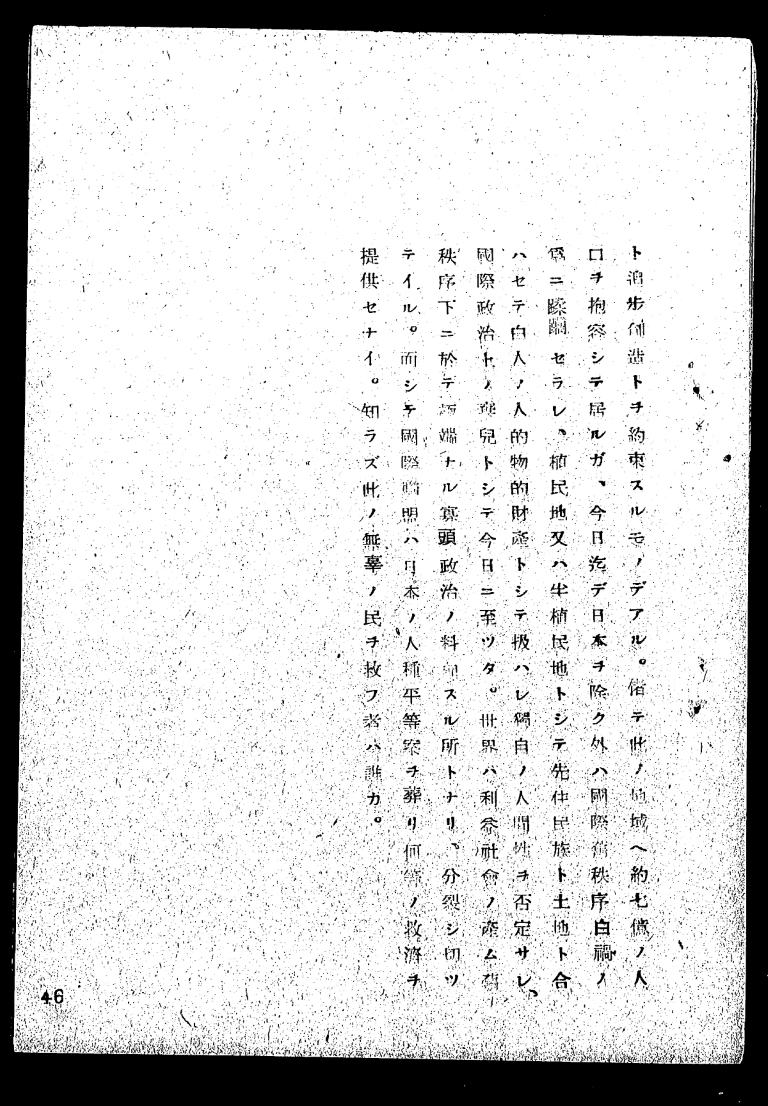 ト進步創造トヲ約束スルモノデアル。偖テ此ノ地域ヘ約七億ノ人
口ヲ抱容シテ居ルガ、今日迄デ日本ヲ除ク外ハ國際舊秩序白禍ノ
爲ニ蹂躙セラレ、植民地又ハ半植民地トシテ先住民族ト土地ト合
ハセテ白人ノ人的物的財產トシテ扱ハレ獨自ノ人間性ヲ否定サレ、
國際政治上ノ棄兒トシテ今日ニ至ツタ。世界ハ利益社會ノ產ム舊
秩序下ニ於テ極端ナル寡頭政治ノ料理スル所トナリ、分裂シ切ツ
テイル。而シテ國際聯盟ハ日本ノ人種平等案ヲ葬リ何等ノ救濟ヲ
提供セナイ。知ラズ此ノ無辜ノ民ヲ救フ者ハ誰カ。
46